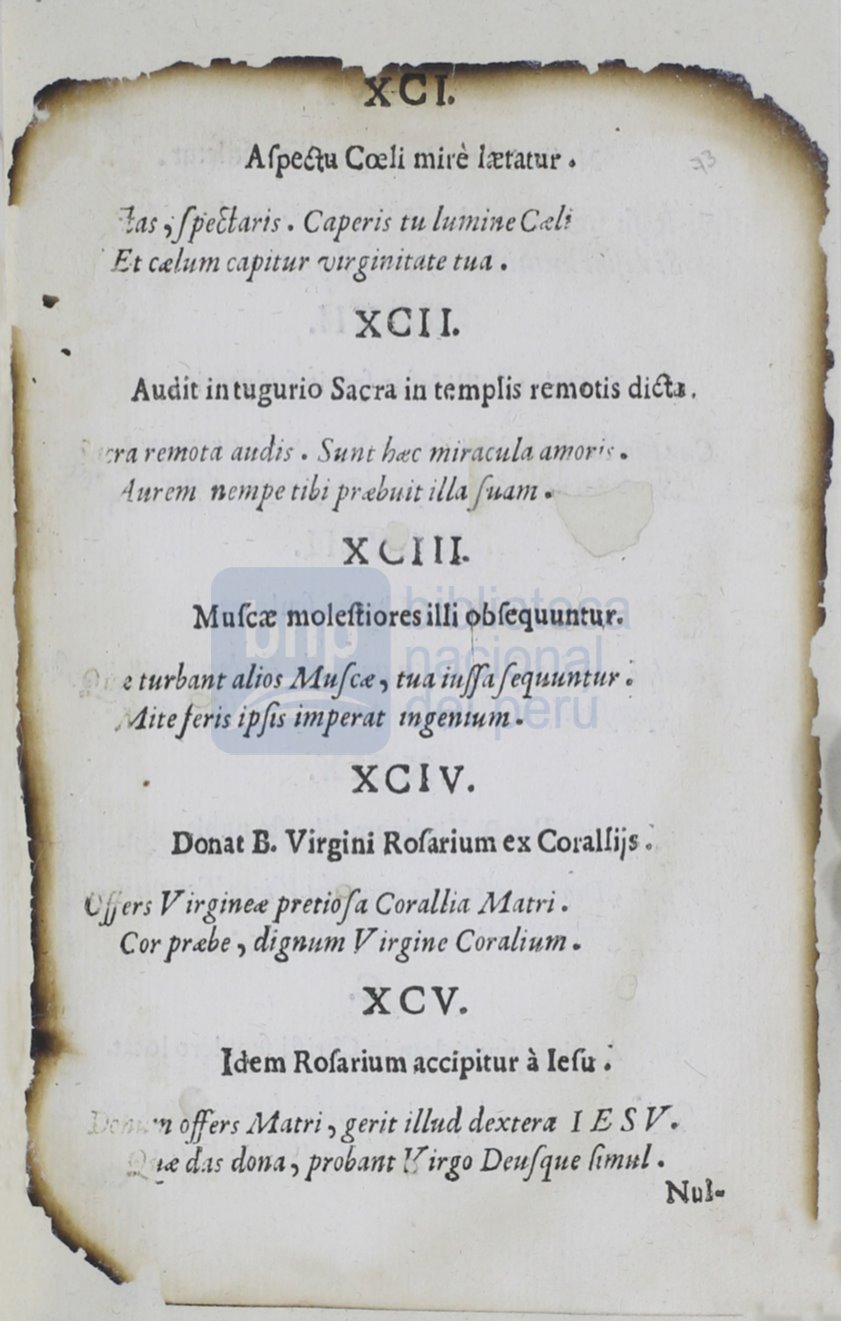 XCI.
73
Aſpectu Cœli mirè lætatur.
ſpectaris. Caperis tu lumine Cæli
Et cælum capitur virginitate tua.
XCII.
Audit in tugurio Sacra in templis remotis dicta.
remota audis. Sunt hæc miracula amoris.
Aurem nempe tibi præbuit illa ſuam.
XCIII.
Muſcæ moleſtiores illi obſequuntur.
turbant alios Muſcæ, tua iuſſa ſequuntur:
Mite feris ipſis imperat ingenium.
XCIV.
Donat B. Virgini Roſarium ex Corallijs.
Offers Virgineæ pretioſa Corallia Matri.
Cor præbe, dignum Virgine Coralium.
XCV.
Idem Roſarium accipitur à Ieſu.
offers Matri, gerit illud dextera IESV.
Quæ das dona, probant Virgo Deuſque ſimul.
Nul-
bnp biblioteca
nacional
del perú